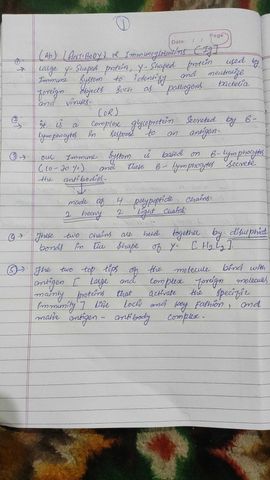 1
Page:
Date: : :
(Ab) (ANTIBODY) or Immunoglobulins [Ig]
① → Large Y-Shaped protein, Y-Shaped protein used by
Immune System to identify and neutralize
foreign objects such as pathogens bacteria
and viruses.
(OR)
② It is a complex glycoprotein secreted by B-
lymphocytes in response to an antigen.
③ → Our Immune System is based on B-lymphocytes
(10-20%) and these B-lymphocytes secrete
the antibodies
made of 4 polypeptide chains
2 heavy 2 light chains
④ → These two chains are held together by disulphid
bonds in the shape of Y. [H2L2]
⑤ → The two top tips of the molecule bind with
antigen [large and complex foreign molecules
mainly proteins that activate the specific
Immunity] like lock and key fashion, and
make antigen-antibody complex.